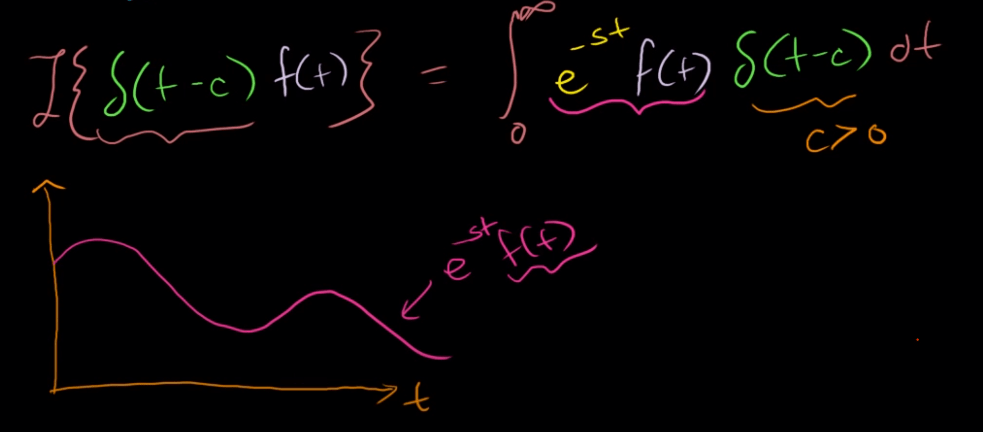 ℒ{δ(t-c) f(t)} = ∫₀^∞ e^{-st} f(t) δ(t-c) dt
c > 0
e^{-st} f(t)
t